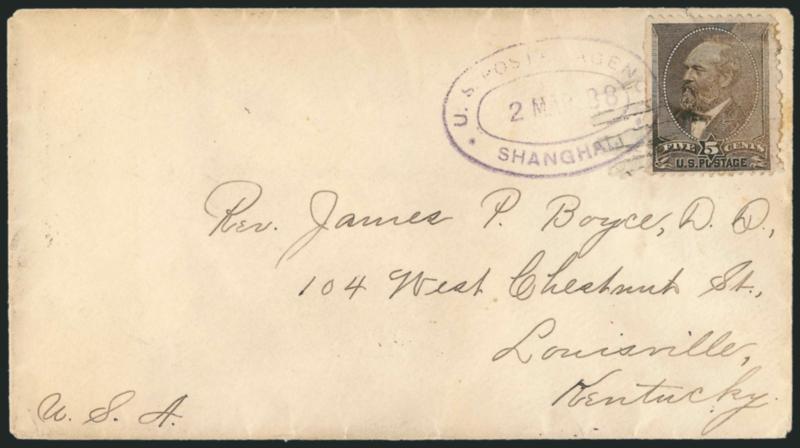 U. S. POSTAL AGENCY
2 MAR 88
SHANGHAI
FIVE 5 CENTS
U.S. POSTAGE
Rev. James P. Boyce, D. D.,
104 West Chestnut St.,
Louisville,
Kentucky.
U. S. A.